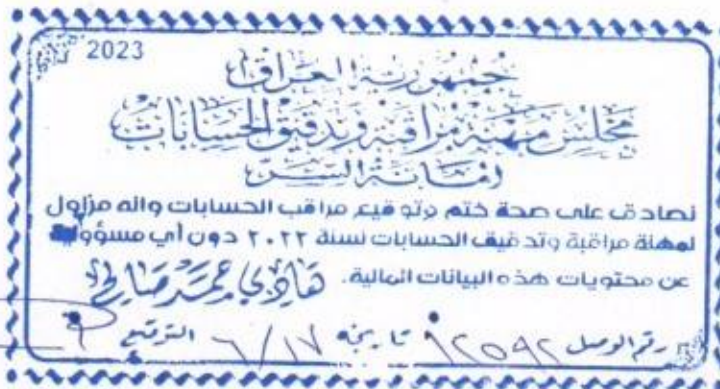 2023
جمهورية العراق
مجلس مهنة مراقبة وتدقيق الحسابات
امانة السر
نصادق على صحة ختم وتوقيع مراقب الحسابات وانه مزاول
لمهنة مراقبة وتدقيق الحسابات لسنة ٢٠٢٢ دون أي مسؤولية
عن محتويات هذه البيانات المالية. هادي حمد صالح
رقم الوصل ٩٢٥٩٢ تاريخه ٦/١٧ التوقيع